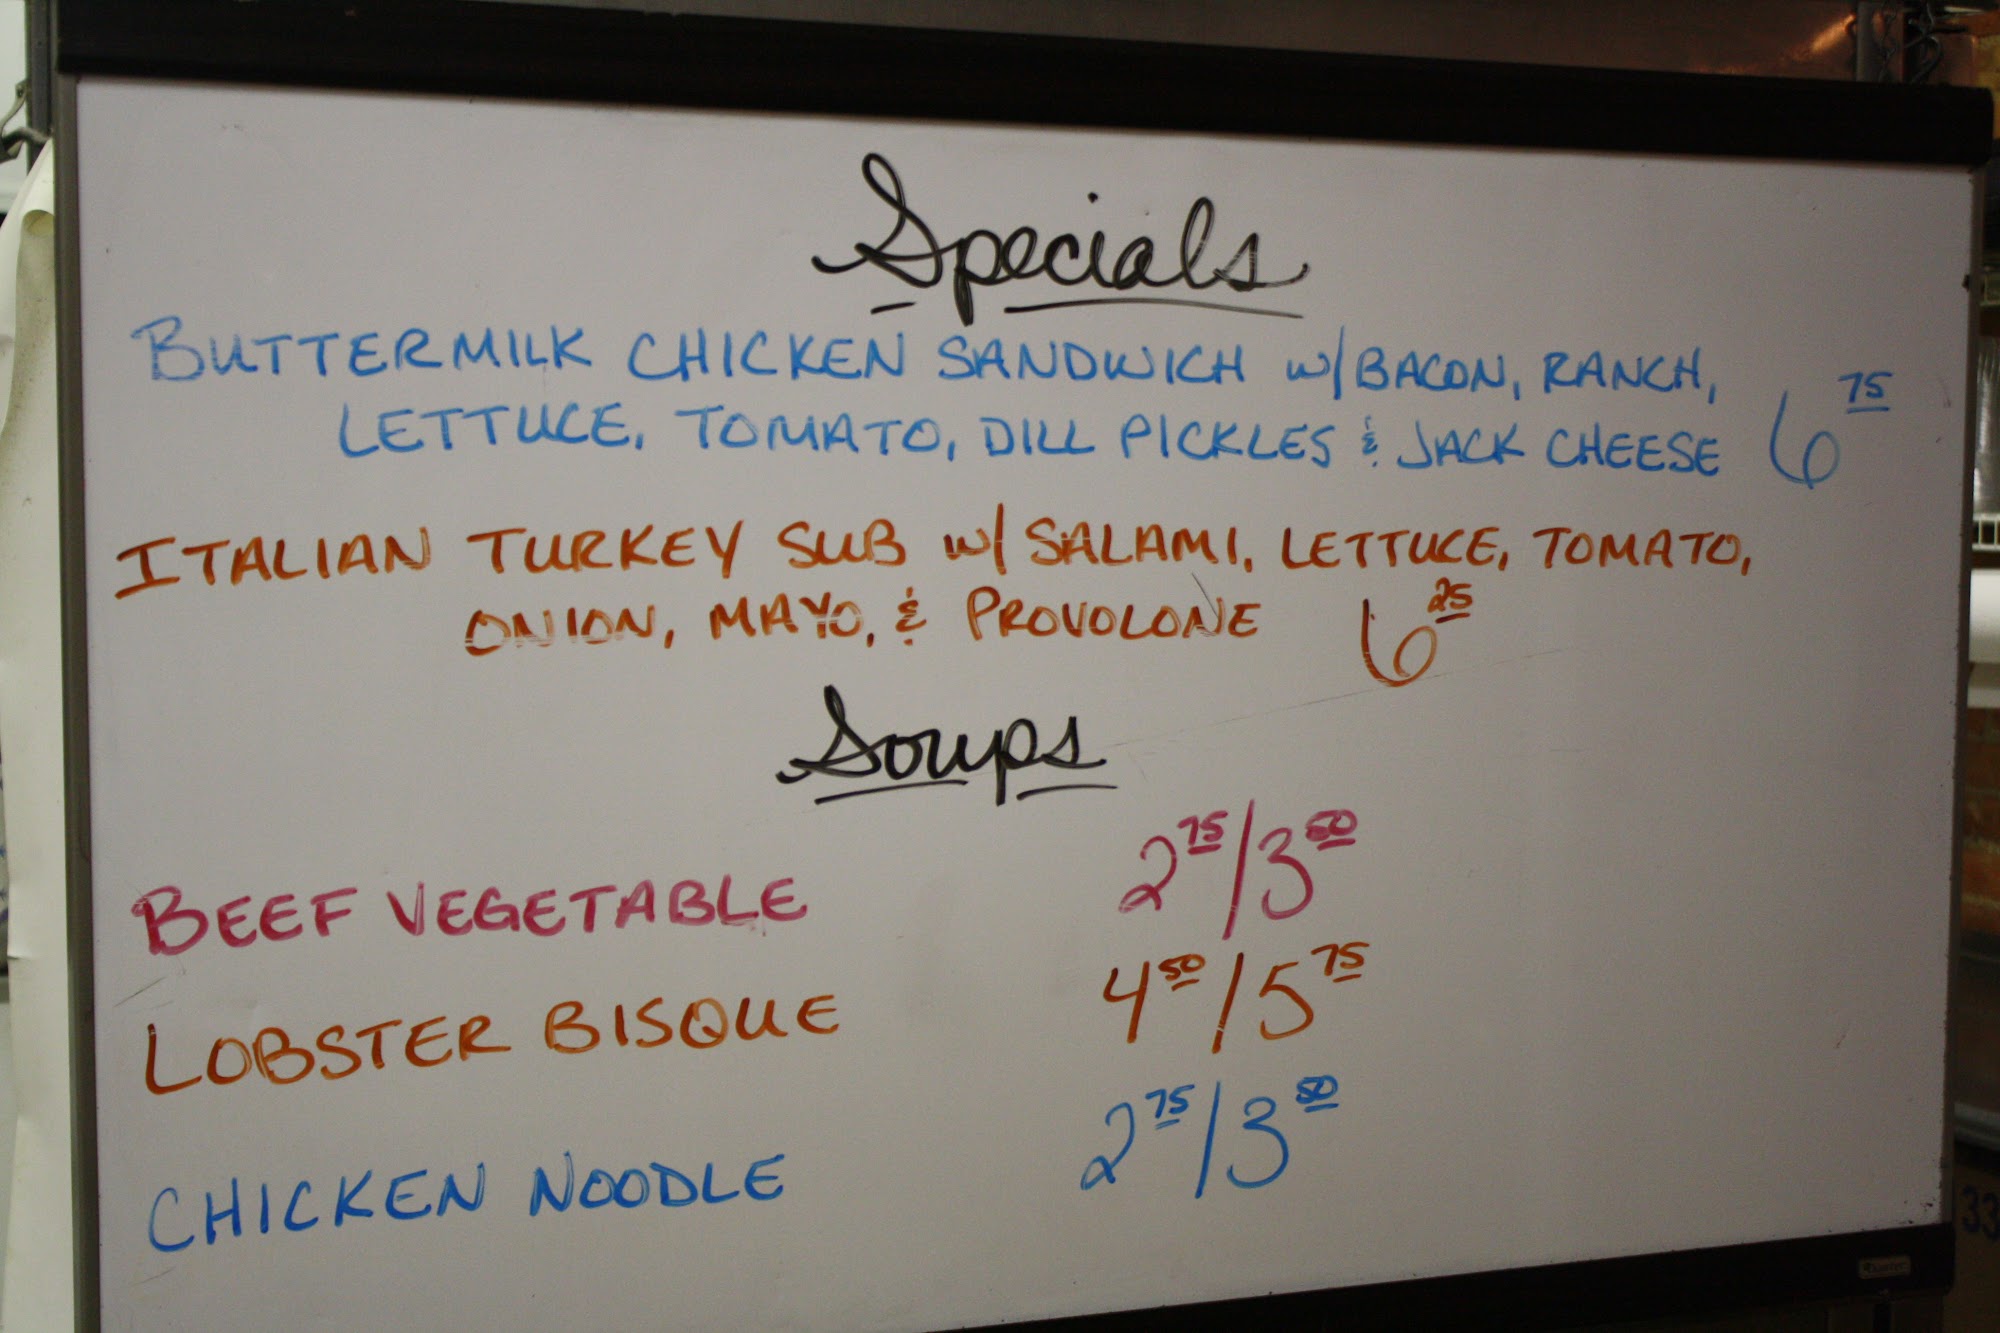 Specials
BUTTERMILK CHICKEN SANDWICH w/BACON, RANCH,
LETTUCE, TOMATO, DILL PICKLES & JACK CHEESE 6 75
ITALIAN TURKEY SUB w/ SALAMI, LETTUCE, TOMATO,
ONION, MAYO, & PROVOLONE 6 25
Soups
BEEF VEGETABLE 2 75/3 50
LOBSTER BISQUE 4 50/5 75
CHICKEN NOODLE 2 75/3 50
33